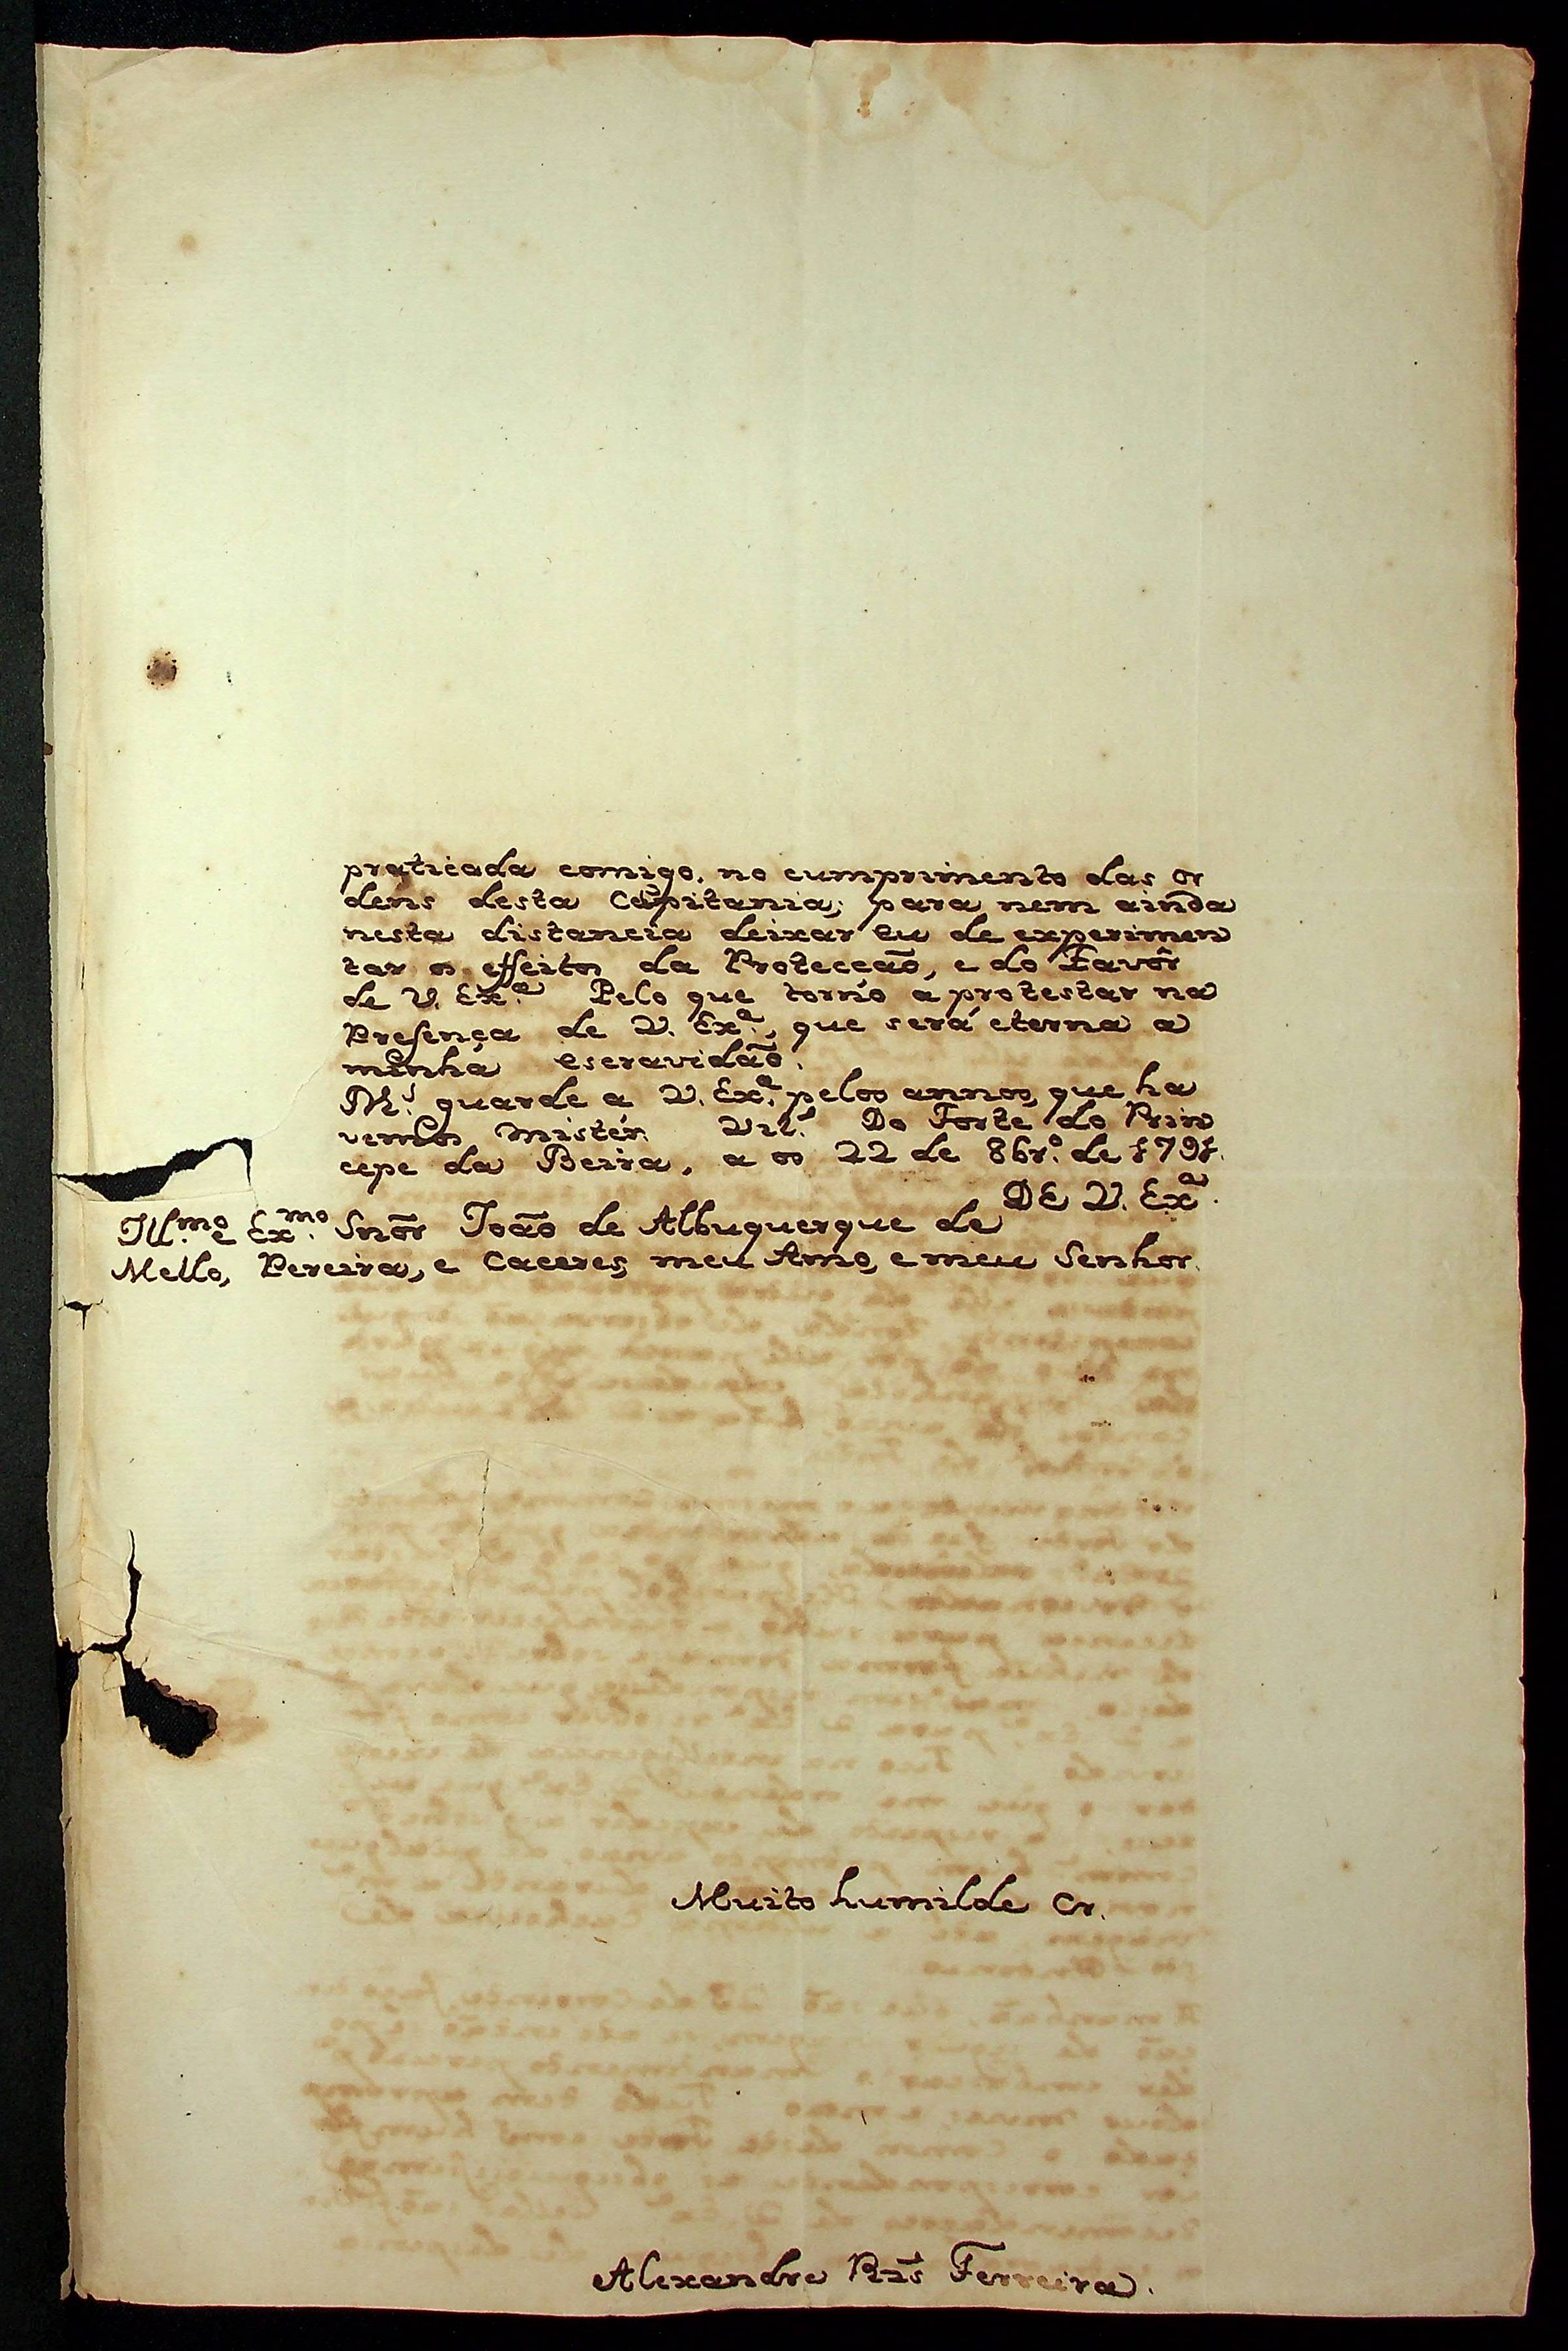 praticada comigo. no cumprimento das or
dens desta Capitania; para nem ainda
nesta distancia deixar eu de experimen
tar os effeitos da Protecçaõ, e do Favôr
de V. Ex.ª Pelo que torno a protestar na
Presença de V. Ex.ª, que será eterna a
minha escravidaõ.
guarde a V. Ex.ª pelos annos, que ha
vemos mistér. Do Forte do Prin
cepe da Beira, a os 22 de 8br.º de 1791.
DE V. Ex.ª
Ill.mo e Ex.mo Snõr Joaõ de Albuquerque de
Mello, Pereira, e Caceres, meu Amo, e meu Senhor.
Muito humilde Cr.
Alexandre Rꝫs Ferreira.